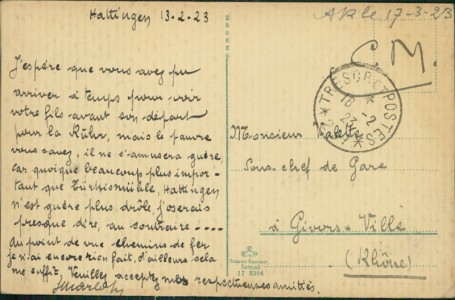 Hattingen 13-2-23
J'espère que vous avez pu
arriver à temps pour voir
votre fils avant son départ
pour la Rühr, mais le pauvre
vous savez, il ne s'amusera guère,
car quoique beaucoup plus impor-
tant que Türkismühle, Hattingen
n'est guère plus drôle, j'oserais
presque dire, au contraire ....
Au point de vue chemins de fer
je n'ai encore rien fait, d'ailleurs cela
me suffit, Veuillez accepter mes respectueuses amitiés.
17-3-23
C.M.
TRESOR ET POSTES
18-2
23
Monsieur
Sous-chef de Gare
à Givors-Ville
(Rhône)